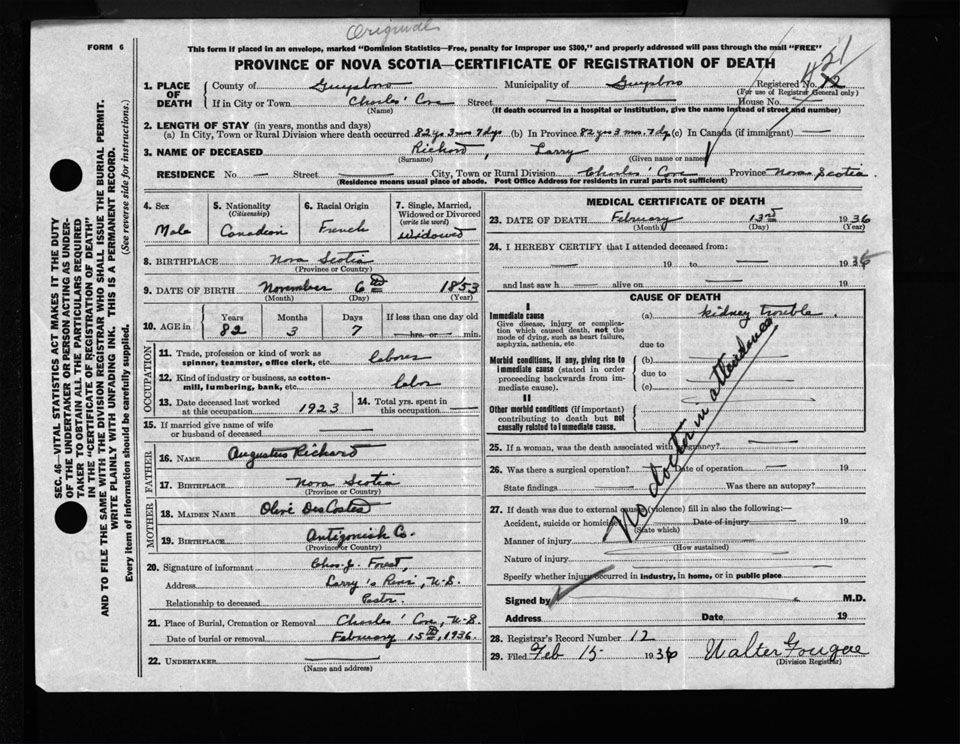 Original
FORM 6
This form if placed in an envelope, marked "Dominion Statistics—Free, penalty for improper use $300," and properly addressed will pass through the mail "FREE"
PROVINCE OF NOVA SCOTIA—CERTIFICATE OF REGISTRATION OF DEATH
21
1. PLACE OF DEATH County of Guysboro Municipality of Guysboro Registered No. 12
(For use of Registrar General only)
If in City or Town Charles' Cove Street House No.
(Name) (If death occurred in a hospital or institution, give the name instead of street and number)
2. LENGTH OF STAY (in years, months and days)
(a) In City, Town or Rural Division where death occurred 82 ys 3 mos. 7 dys (b) In Province 82 ys 3 mos. 7 dy (c) In Canada (if immigrant) —
3. NAME OF DECEASED Richard, Larry
(Surname) (Given name or names)
RESIDENCE No. — Street — City, Town or Rural Division Charles' Cove Province Nova Scotia
(Residence means usual place of abode. Post Office Address for residents in rural parts not sufficient)
SEC. 46—VITAL STATISTICS ACT MAKES IT THE DUTY
OF THE UNDERTAKER OR PERSON ACTING AS UNDER-
TAKER TO OBTAIN ALL THE PARTICULARS REQUIRED
IN THE "CERTIFICATE OF REGISTRATION OF DEATH"
AND TO FILE THE SAME WITH THE DIVISION REGISTRAR WHO SHALL ISSUE THE BURIAL PERMIT.
WRITE PLAINLY WITH UNFADING INK. THIS IS A PERMANENT RECORD.
Every item of information should be carefully supplied. (See reverse side for instructions.)
4. Sex
Male
5. Nationality
(Citizenship)
Canadian
6. Racial Origin
French
7. Single, Married, Widowed or Divorced
(write the word)
Widowed
8. BIRTHPLACE Nova Scotia
(Province or Country)
9. DATE OF BIRTH November 6th 1853
(Month) (Day) (Year)
10. AGE in Years Months Days If less than one day old
82 3 7 hrs. or min.
OCCUPATION
11. Trade, profession or kind of work as
spinner, teamster, office clerk, etc. laborer
12. Kind of industry or business, as cotton-
mill, lumbering, bank, etc. labor
13. Date deceased last worked
at this occupation 1923
14. Total yrs. spent in
this occupation
15. If married give name of wife
or husband of deceased
FATHER
16. NAME Augustus Richard
17. BIRTHPLACE Nova Scotia
(Province or Country)
MOTHER
18. MAIDEN NAME Olive DesCostes
19. BIRTHPLACE Antigonish Co.
(Province or Country)
20. Signature of informant Chas. J. Forest,
Address Larry's River, N.S.
Relationship to deceased Pastor
21. Place of Burial, Cremation or Removal Charles' Cove, N.S.
Date of burial or removal February 15th, 1936.
22. UNDERTAKER
(Name and address)
MEDICAL CERTIFICATE OF DEATH
23. DATE OF DEATH February 13th 1936
(Month) (Day) (Year)
24. I HEREBY CERTIFY that I attended deceased from:
— 19 to — 1936
and last saw h — alive on — 19
CAUSE OF DEATH
I
Immediate cause
Give disease, injury or complication which caused death, not the mode of dying, such as heart failure, asphyxia, asthenia, etc.
(a) kidney trouble
due to
Morbid conditions, if any, giving rise to immediate cause (stated in order proceeding backwards from immediate cause).
(b)
due to
(c)
II
Other morbid conditions (if important) contributing to death but not causally related to immediate cause.
No doctor in attendance
25. If a woman, was the death associated with pregnancy?
26. Was there a surgical operation? Date of operation 19
State findings Was there an autopsy?
27. If death was due to external causes (violence) fill in also the following:—
Accident, suicide or homicide Date of injury 19
(State which)
Manner of injury
(How sustained)
Nature of injury
Specify whether injury occurred in industry, in home, or in public place
Signed by M.D.
Address Date 19
28. Registrar's Record Number 12
29. Filed Feb 15 1936 Walter Fougere
(Division Registrar)